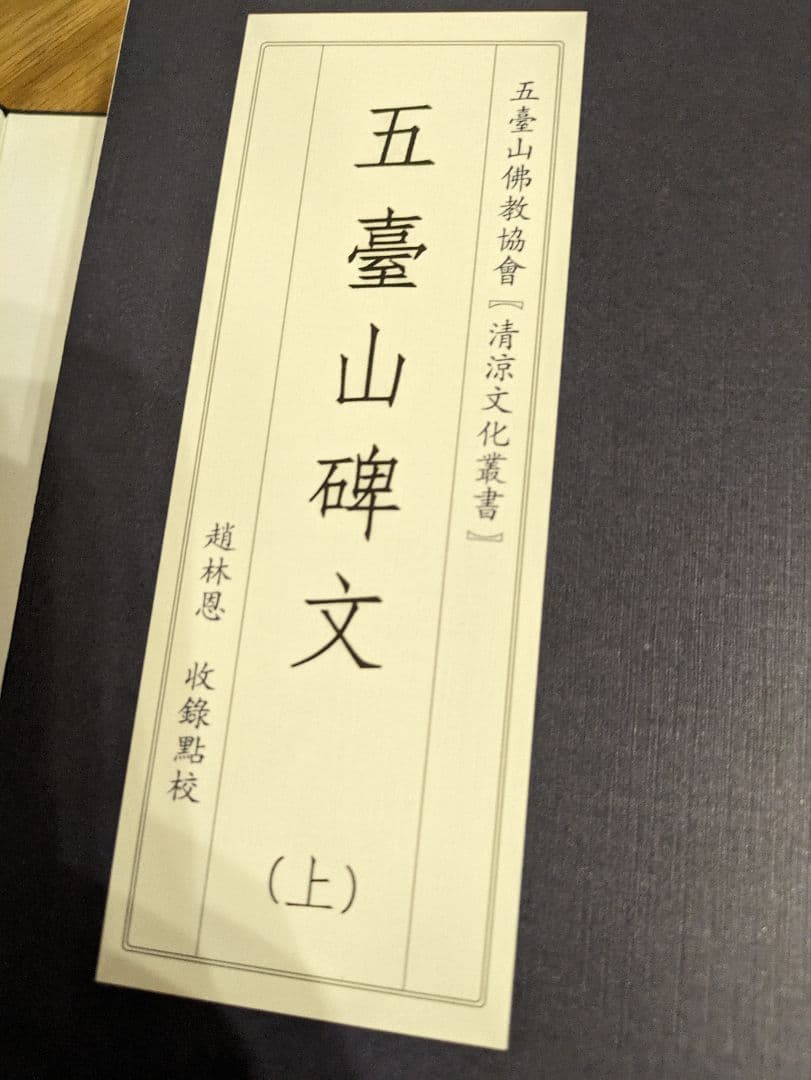 五臺山佛教協會【清涼文化叢書】
五臺山碑文(上)
趙林恩 收錄點校